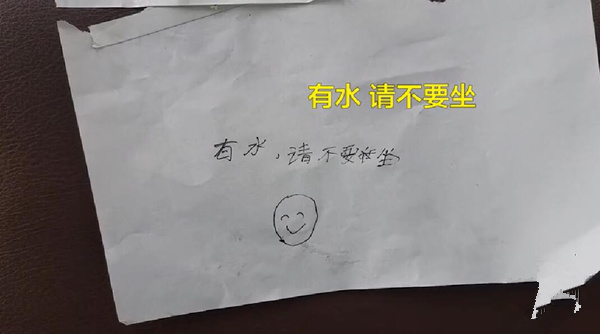 有水 请不要坐
有水，请不要坐